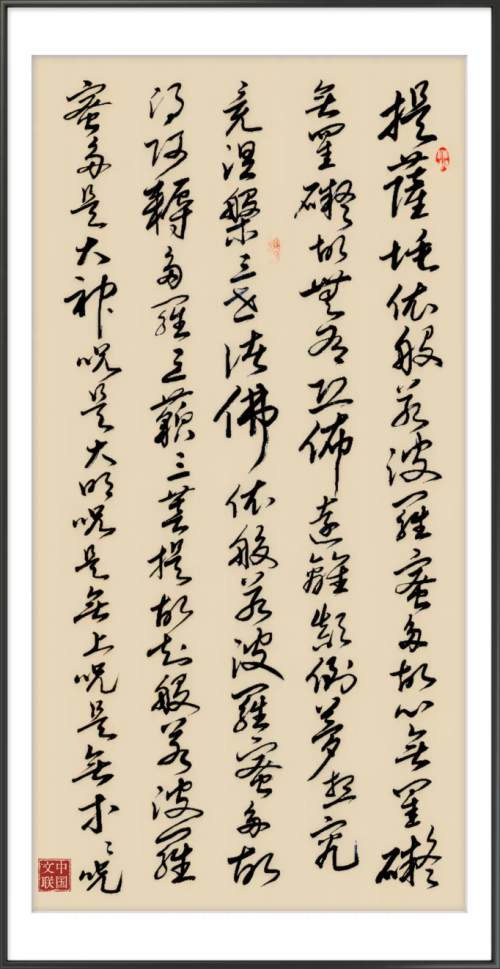 提薩埵依般若波羅蜜多故心無罣礙
無罣礙故無有恐佈遠離顛倒夢想究
竟涅槃三世諸佛依般若波羅蜜多故
得阿耨多羅三藐三菩提故知般若波羅
蜜多是大神呪是大明呪是無上呪是無等々呪
中国
文联